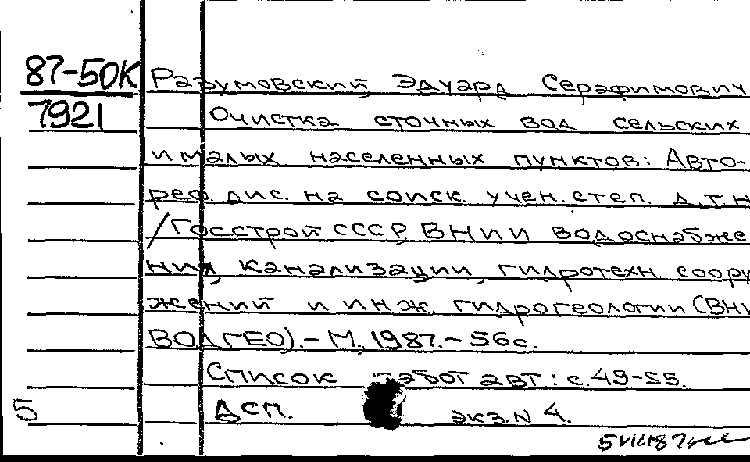 87-50К
7921
Разумовский Эдуард Серафимович
Очистка сточных вод сельских
и малых населенных пунктов: Авто-
реф. дис. на соиск. учен. степ. д.т.н.
/Госстрой СССР, ВНИИ водоснабже
ния, канализации, гидротехн. соору
жений и инж. гидрогеологии (ВНИ
ВОДГЕО).- М., 1987.- 56с.
Список работ авт.: с.49-55.
5 ДСП. экз.N 4.